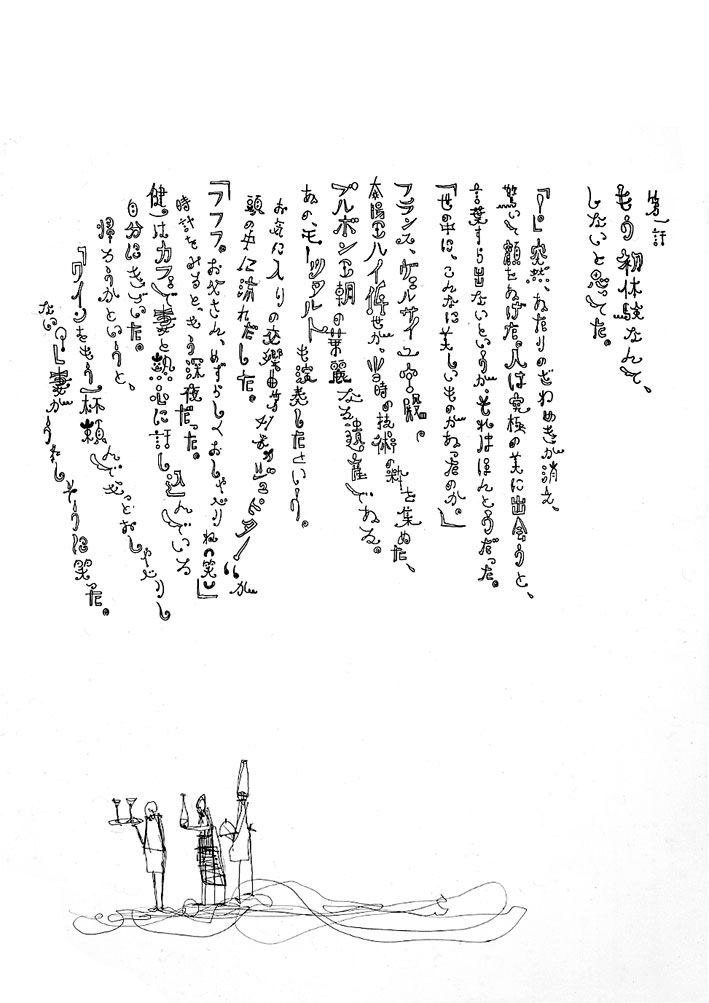 第一話
もう初体験なんて、
しないと思ってた。
「!」突然、あたりのざわめきが消え、
驚いて顔をあげた。人は究極の美に出会うと、
言葉すら出ないというが、それはほんとうだった。
「世の中に、こんなに美しいものがあったのか。」
フランス、ヴェルサイユ宮殿。
太陽王ルイ14世が、当時の技術の粋を集めた、
ブルボン王朝の華麗なる遺産である。
あのモーツァルトも演奏したという。
お気に入りの交響曲 "ジュピター" が
頭の中に流れだした。
「フフフ。お父さん、めずらしくおしゃべりね(笑)」
時計をみると、もう深夜だった。
健一はカフェで妻と熱心に話し込んでいる
自分にきづいた。
帰ろうかというと、
「ワインをもう一杯頼んでもっとおしゃべりし
ない?」妻がうれしそうに笑った。